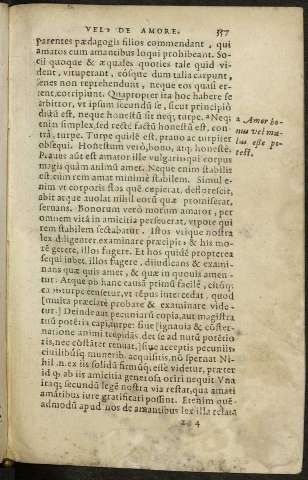 VEL DE AMORE. 557
parentes pædagogis filios commendant, qui
amatos cum amantibus loqui prohibeant. So-
cii quoque & æquales quoties tale quid vi-
dent, vituperant, eósque dum talia carpunt,
senes non reprehendunt, neque eos quasi er-
rent, corripiunt. Quapropter ita hoc habere se
arbitror, vt ipsum secundū se, sicut principiō
dictū est, neque honestū sit neq; turpe. a Neq;
enim simplex, sed rectè factū honestū est, con-
trà, turpe. Turpe quidē est, prauo ac turpiter
obsequi. Honestum verò, bono, atq; honestè.
Prauus aūt est amator ille vulgaris qui corpus
magis quàm animū amet. Neque enim stabilis
est cùm rem amat minimè stabilem. Simul e-
nim vt corporis flos quē cupierat, deflorescit,
abit atque auolat nihil eorū quæ promiserat,
seruans. Bonorum verò morum amator, per
omnem vitā in amicitia perseuerat, vtpote qui
rem stabilem sectabatur. Istos vtique nostra
lex diligenter examinare præcipit: & his mo-
rē gerere, illos fugere. Et hos quidē propterea
sequi iubet, illos fugere, diiudicans & exami-
nans quæ quis amet, & quæ in quouis amen-
tur. Atque ob hanc causā primū facilè, citóq;
capi turpe censetur, vt tēpus intercedat, quod
[multa præclarè probare & examinare vide-
tur.] Deinde aut pecuniarū copia, aut magistra
tuū potētia capi, turpe: siue [ignauia & cōster-
natione animi trepidās, det se ad nutū potētio
ris, nec cōstāter renuat,] siue acceptis pecuniis
ciuilibúsq; munerib. acquisitis, nō spernat. Ni-
hil .n. ex iis solidū firmúq; esse videtur, præter
id q̨ ab iis amicitia generosa oriri nequit. Vna
itaq; secundū legē nostrā via restat, qua amati
amātibus iure gratificari possint. Etenim quē-
admodū apud nos de amantibus lex illa relata
z 4
a Amor bo-
nus vel ma-
lus esse po-
test.